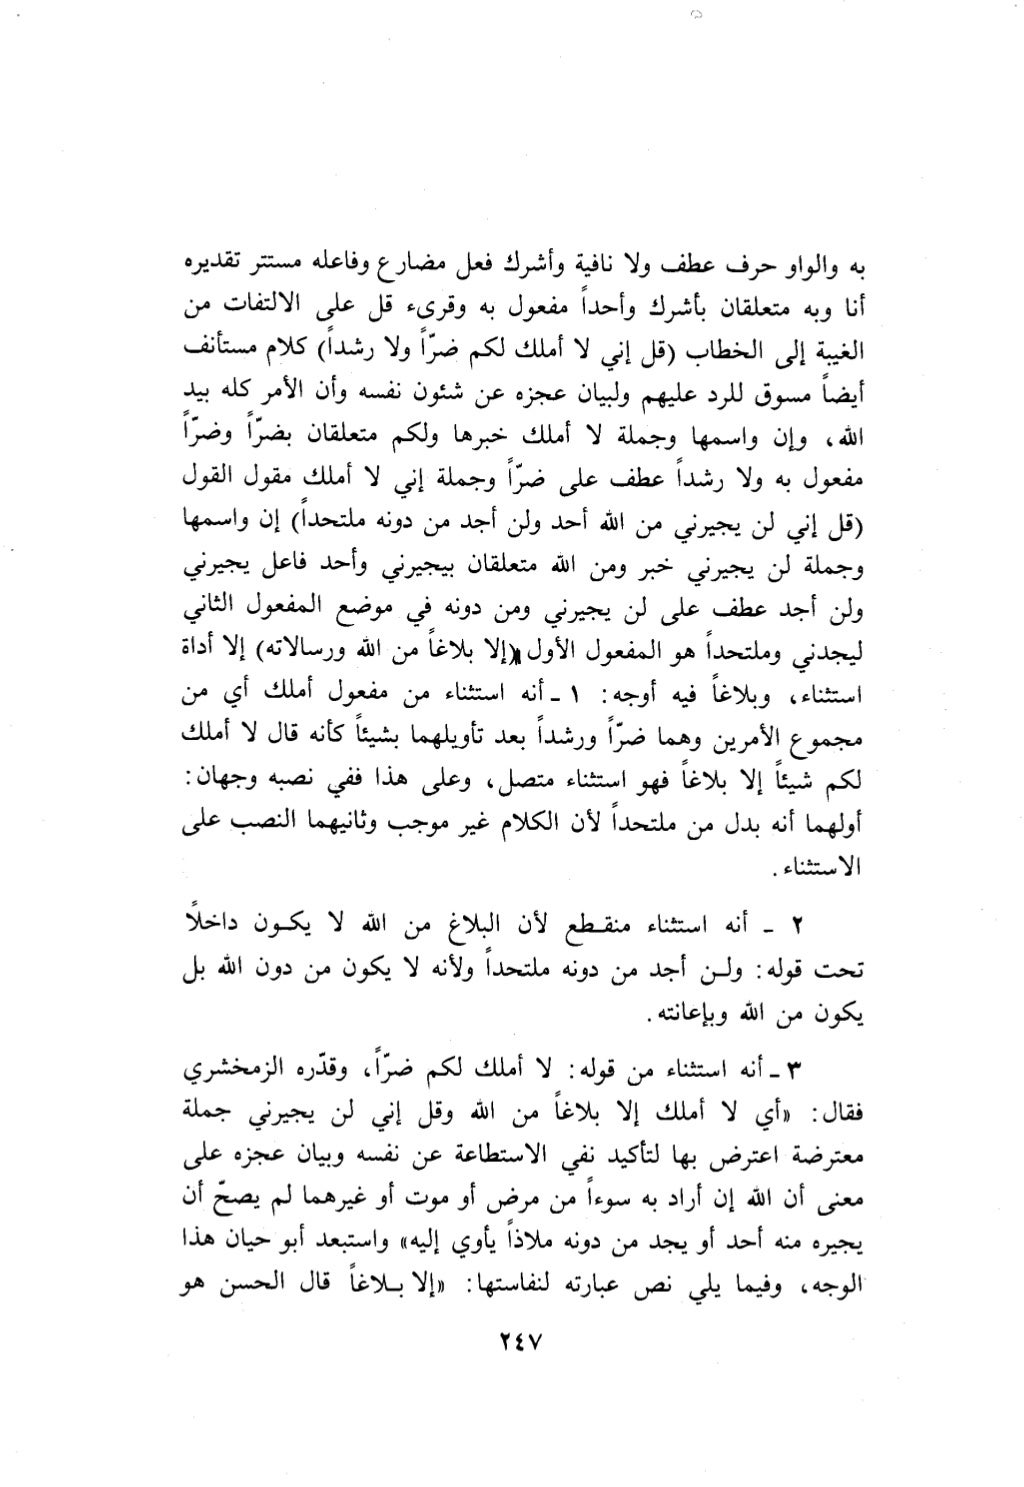 به والواو حرف عطف ولا نافية وأشرك فعل مضارع وفاعله مستتر تقديره
أنا وبه متعلقان بأشرك وأحداً مفعول به وقرىء قل على الالتفات من
الغيبة إلى الخطاب (قل إني لا أملك لكم ضرّاً ولا رشداً) كلام مستأنف
أيضاً مسوق للرد عليهم ولبيان عجزه عن شئون نفسه وأن الأمر كله بيد
الله، وإن واسمها وجملة لا أملك خبرها ولكم متعلقان بضرّاً وضرّاً
مفعول به ولا رشداً عطف على ضرّاً وجملة إني لا أملك مقول القول
(قل إني لن يجيرني من الله أحد ولن أجد من دونه ملتحداً) إن واسمها
وجملة لن يجيرني خبر ومن الله متعلقان بيجيرني وأحد فاعل يجيرني
ولن أجد عطف على لن يجيرني ومن دونه في موضع المفعول الثاني
ليجدني وملتحداً هو المفعول الأول (إلا بلاغاً من الله ورسالاته) إلا أداة
استثناء، وبلاغاً فيه أوجه: ١ ـ أنه استثناء من مفعول أملك أي من
مجموع الأمرين وهما ضرّاً ورشداً بعد تأويلهما بشيئاً كأنه قال لا أملك
لكم شيئاً إلا بلاغاً فهو استثناء متصل، وعلى هذا ففي نصبه وجهان:
أولهما أنه بدل من ملتحداً لأن الكلام غير موجب وثانيهما النصب على
الاستثناء.
٢ ـ أنه استثناء منقطع لأن البلاغ من الله لا يكون داخلًا
تحت قوله: ولن أجد من دونه ملتحداً ولأنه لا يكون من دون الله بل
يكون من الله وبإعانته.
٣ ـ أنه استثناء من قوله: لا أملك لكم ضرّاً، وقدّره الزمخشري
فقال: «أي لا أملك إلا بلاغاً من الله وقل إني لن يجيرني جملة
معترضة اعترض بها لتأكيد نفي الاستطاعة عن نفسه وبيان عجزه على
معنى أن الله إن أراد به سوءاً من مرض أو موت أو غيرهما لم يصحّ أن
يجيره منه أحد أو يجد من دونه ملاذاً يأوي إليه» واستبعد أبو حيان هذا
الوجه، وفيما يلي نص عبارته لنفاستها: «إلا بلاغاً قال الحسن هو
٢٤٧